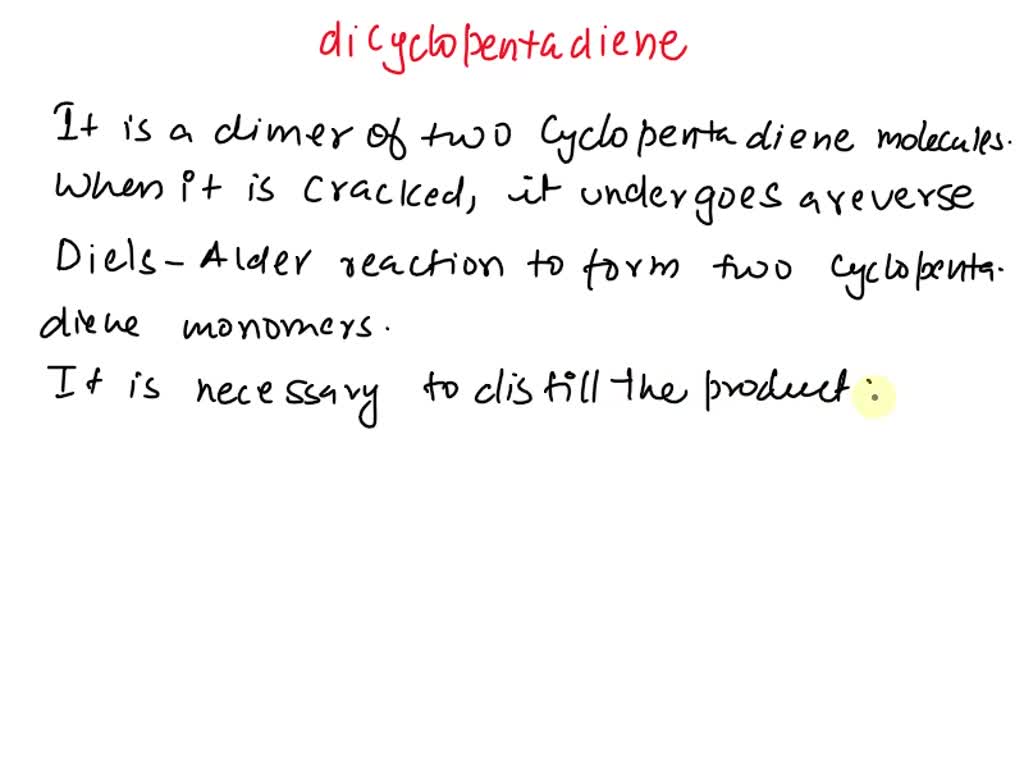 dicyclopentadiene
It is a dimer of two Cyclopentadiene molecules.
When it is cracked, it undergoes a reverse
Diels-Alder reaction to form two cyclopenta-
diene monomers.
It is necessary to distill the product: